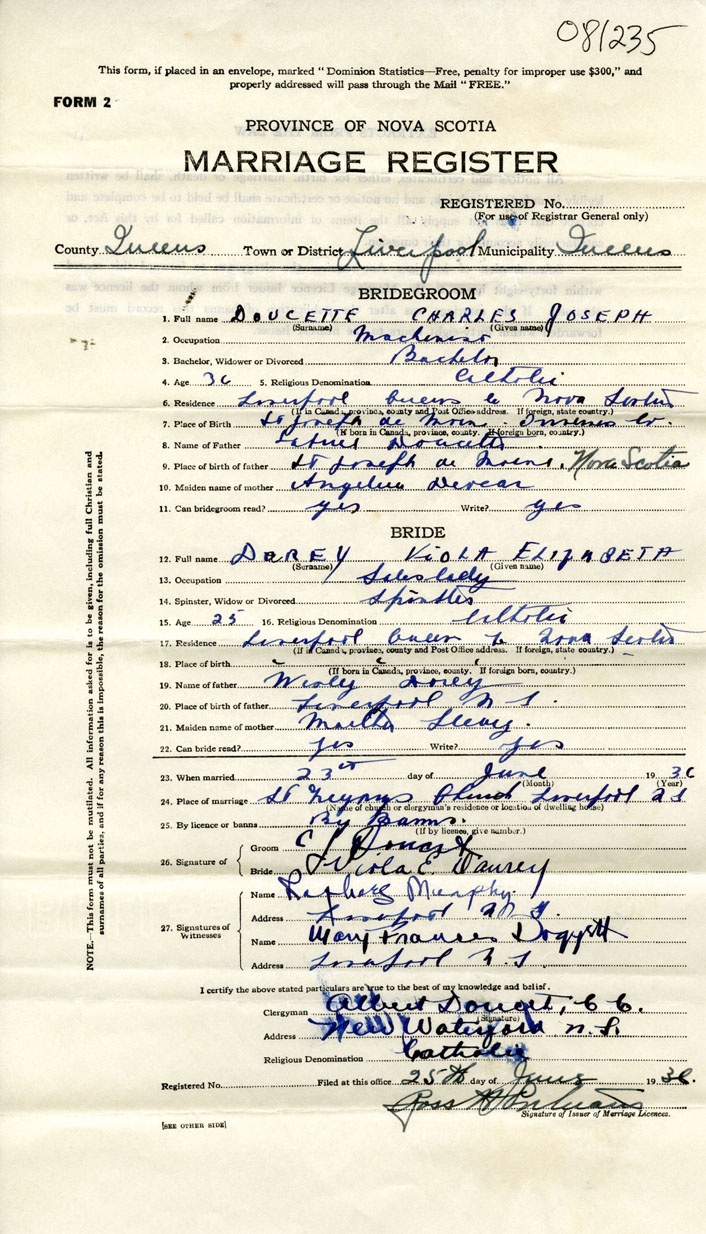 081235
This form, if placed in an envelope, marked "Dominion Statistics—Free, penalty for improper use $300," and
properly addressed will pass through the Mail "FREE."
FORM 2
PROVINCE OF NOVA SCOTIA
MARRIAGE REGISTER
REGISTERED No.
(For use of Registrar General only)
County Queens Town or District Liverpool Municipality Queens
BRIDEGROOM
1. Full name DOUCETTE CHARLES JOSEPH
(Surname) (Given name)
2. Occupation Machinist
3. Bachelor, Widower or Divorced Bachelor
4. Age 36 5. Religious Denomination Catholic
6. Residence Liverpool Queens Co Nova Scotia
(If in Canada, province, county and Post Office address. If foreign, state country.)
7. Place of Birth St Joseph de Moine Inverness Co.
(If born in Canada, province, county. If foreign born, country.)
8. Name of Father Doucette
9. Place of birth of father St Joseph de Moine, Nova Scotia
10. Maiden name of mother
11. Can bridegroom read? yes Write? yes
BRIDE
12. Full name DOREY VIOLA ELIZABETH
(Surname) (Given name)
13. Occupation Saleslady
14. Spinster, Widow or Divorced Spinster
15. Age 25 16. Religious Denomination Catholic
17. Residence Liverpool Queens Co Nova Scotia
(If in Canada, province, county and Post Office address. If foreign, state country.)
18. Place of birth
(If born in Canada, province, county. If foreign born, country.)
19. Name of father Dorey
20. Place of birth of father Liverpool N S.
21. Maiden name of mother Martha
22. Can bride read? yes Write? yes
23. When married 23rd day of June 1936
(Month) (Year)
24. Place of marriage St Church Liverpool N S
(Name of church or clergyman's residence or location of dwelling house)
25. By licence or banns By Banns.
(If by licence, give number.)
26. Signature of
Groom C J Doucet
Bride Viola E Daurey
27. Signatures of Witnesses
Name Murphy
Address Liverpool N. S.
Name Mary Frances Doggett
Address Liverpool N. S.
I certify the above stated particulars are true to the best of my knowledge and belief.
Clergyman Albert Doucet, C C.
(Signature)
Address New Waterford N. S.
Religious Denomination Catholic
Registered No. Filed at this office 25th day of June 1936.
Ross
Signature of Issuer of Marriage Licences.
[SEE OTHER SIDE]
NOTE.—This form must not be mutilated. All information asked for is to be given, including full Christian and
surnames of all parties, and if for any reason this is impossible, the reason for the omission must be stated.